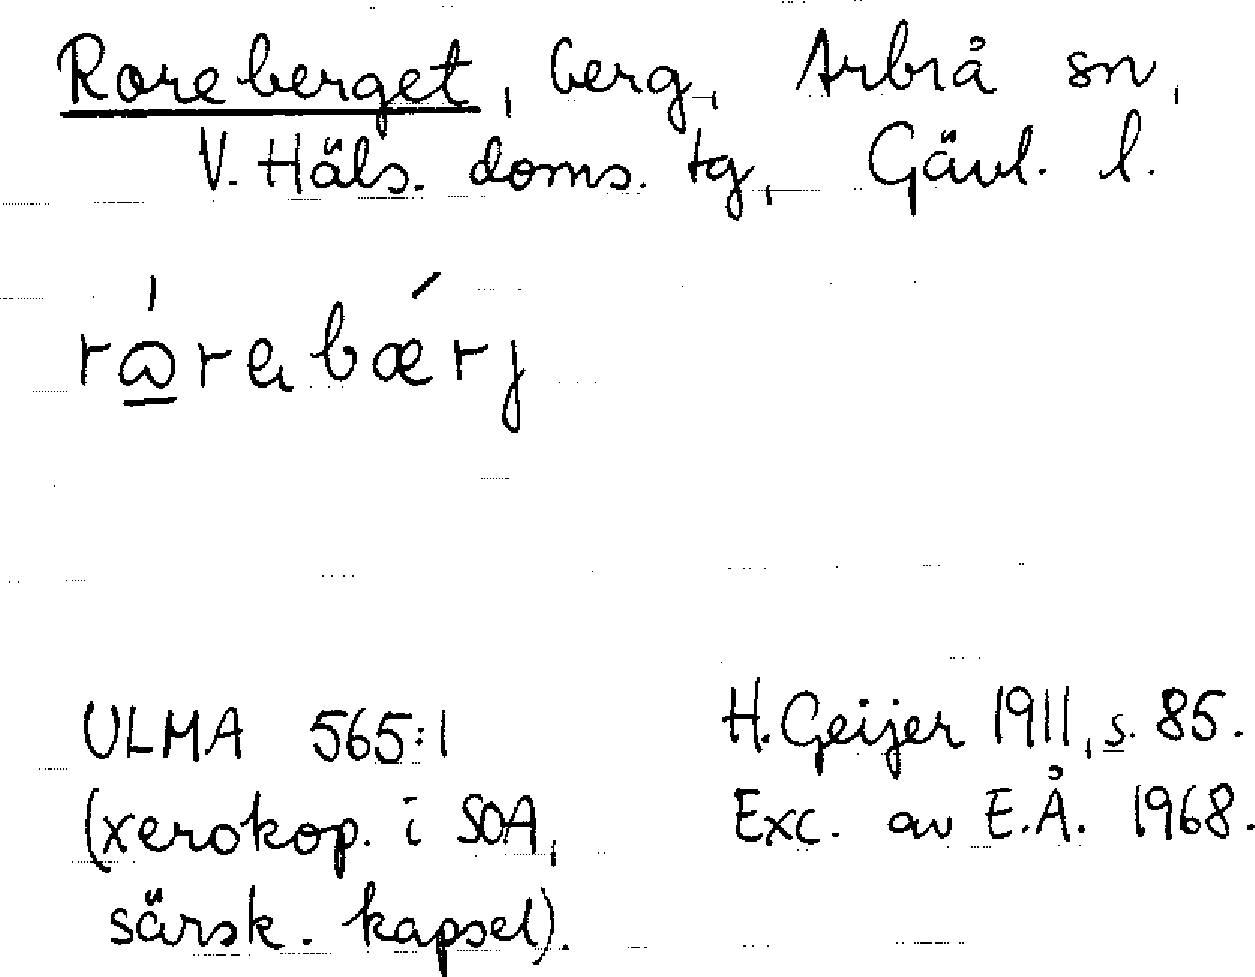 Roreberget, berg, Arbrå sn,
V. Häls. doms. tg, Gävl. l.
ULMA 565:1
(xerokop. i SOA,
särsk. kapsel).
H. Geijer 1911, s. 85.
Exc. av E.Å. 1968.